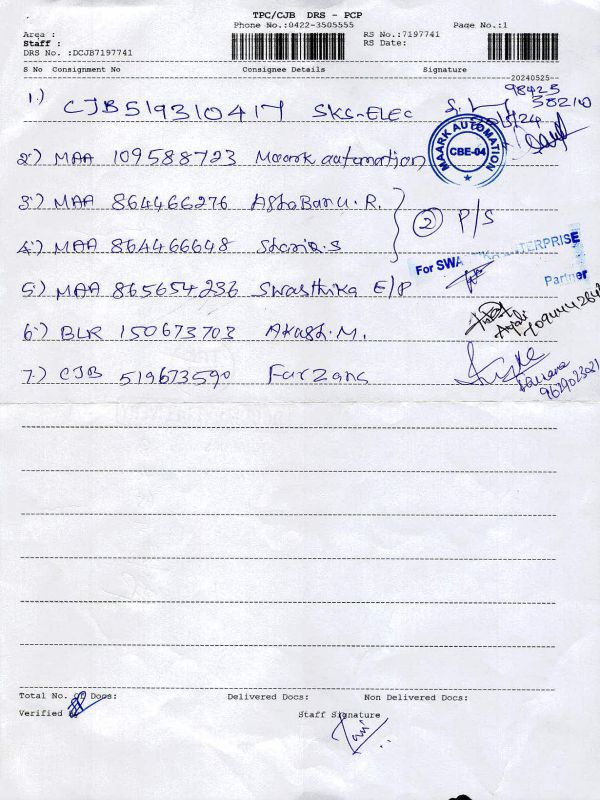 TPC/CJB DRS - PCP
Phone No.:0422-3505555 Page No.:1
Area :
Staff :
DRS No. :DCJB7197741
RS No.:7197741
RS Date:
S No Consignment No Consignee Details Signature
20240525
1.) CJB519310417 SKS-ELEC
98425
58210
MAARK AUTOMATION
CBE-04
2.) MAA 109588723 Maark automation
3.) MAA 864466276 AshoBanu.R.
2 P/S
4.) MAA 864466648 Sharia.S
For SWA ENTERPRISE
Partner
5.) MAA 865654236 Swasthika E/P
6.) BLR 150673703 Akash.M.
Anjali
7.) CJB 519673590 Farzana
Farzana
9629023021
Total No. of Docs: Delivered Docs: Non Delivered Docs:
Verified
Staff Signature